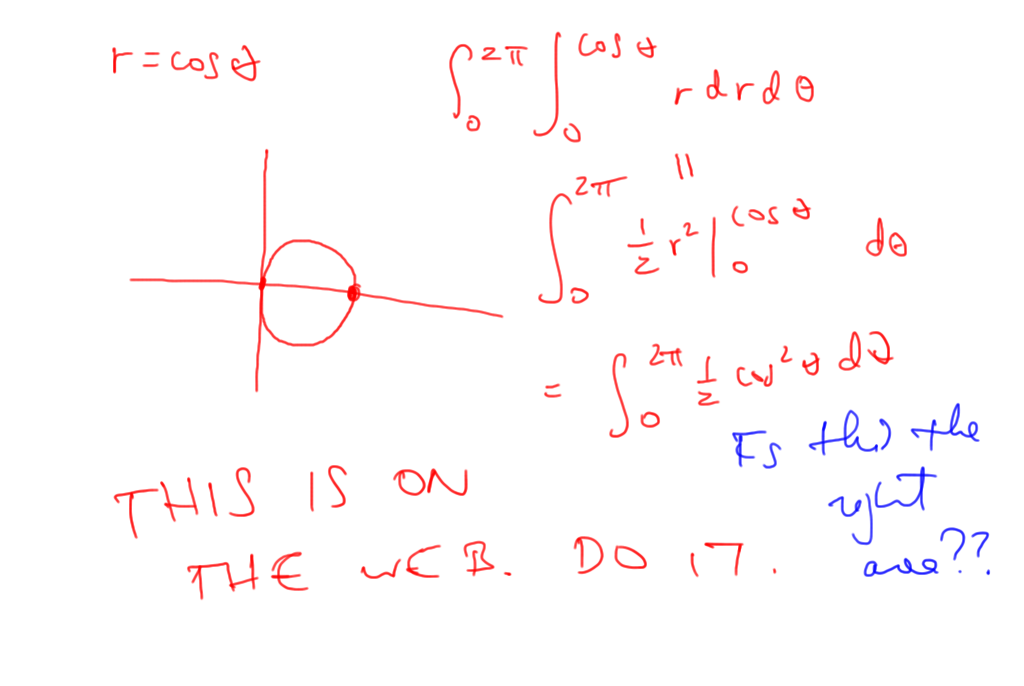 r = cos θ
∫₀^{2π} ∫₀^{cos θ} r dr dθ
||
∫₀^{2π} ½ r² |₀^{cos θ} dθ
= ∫₀^{2π} ½ cos² θ dθ
Is this the
right
area??
THIS IS ON
THE WEB. DO IT.